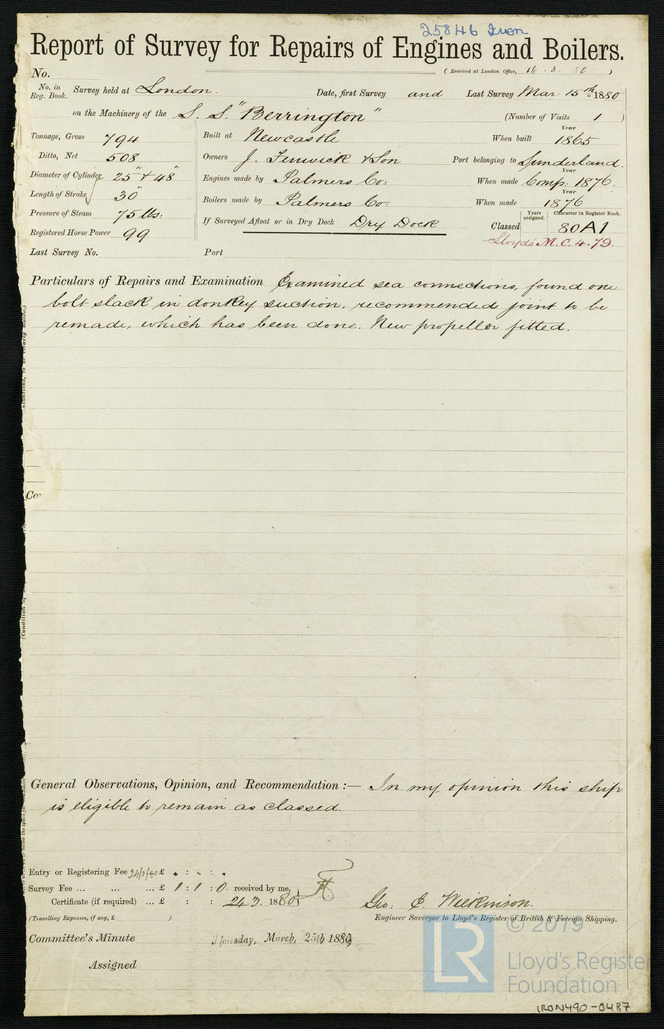 25846 Iron
Report of Survey for Repairs of Engines and Boilers.
No. (Received at London Office, 16 . 3 . 80 )
No. in Reg. Book. Survey held at London. Date, first Survey and Last Survey Mar. 15th 1880
on the Machinery of the S. S. "Berrington" (Number of Visits 1 )
Tonnage, Gross 794 Built at Newcastle When built Year 1865
Ditto, Net 508 Owners J. Fenwick & Son Port belonging to Sunderland.
Diameter of Cylinder 25" & 48" Engines made by Palmers Co. When made Year Comp: 1876.
Length of Stroke 30" Boilers made by Palmers Co. When made Year 1876
Pressure of Steam 75 lbs. If Surveyed Afloat or in Dry Dock Dry Dock Classed Years assigned. Character in Register Book. 80A1
Registered Horse Power 99 Lloyds M.C. 4.79.
Last Survey No. Port
Particulars of Repairs and Examination Examined sea connections, found one
bolt slack in donkey suction, recommended joint to be
remade, which has been done. New propeller fitted.
Co
General Observations, Opinion, and Recommendation :— In my opinion this ship
is eligible to remain as classed.
Entry or Registering Fee 24/3/80 £ : :
Survey Fee ... ... ... £ 1 : 1 : 0. received by me,
Certificate (if required) ... £ : : 24.3. 1880 Geo: E. Wilkinson.
(Travelling Expenses, if any, £ ) Engineer Surveyor to Lloyd's Register of British & Foreign Shipping.
Committee's Minute Thursday, March, 25th 1880
Assigned
© 2019
LR
Lloyd's Register
Foundation
IRON490-0487